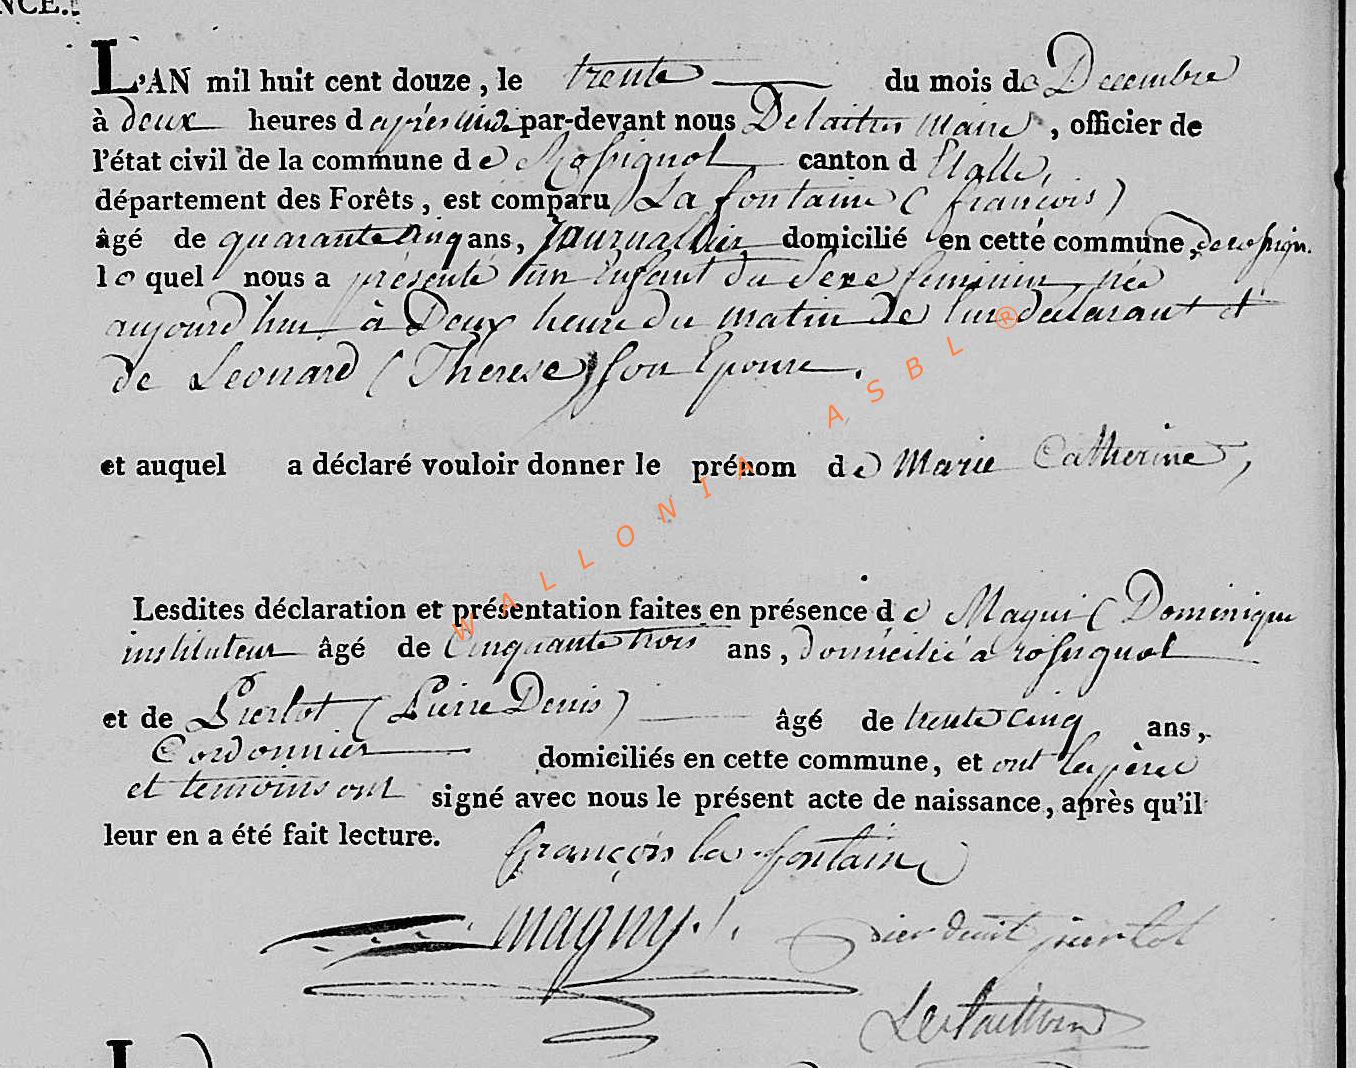 NCE.
L'AN mil huit cent douze, le trente du mois de Decembre
à deux heures d'après midi par-devant nous Delaitre Maire, officier de
l'état civil de la commune de Rossignol canton d'Etalle,
département des Forêts, est comparu La fontaine (françois)
âgé de quarante cinq ans, Journallier domicilié en cette commune, de rossign.
lequel nous a présenté un Enfant du Sexe feminin, née
aujourd'hui à Deux heure du matin de lui declarant et
de Leonard (Therese) son Epouse.
et auquel a déclaré vouloir donner le prénom de Marie Catherine,
Lesdites déclaration et présentation faites en présence de Magni (Dominique
instituteur âgé de Cinquante trois ans, domicilié à rossignol
et de Pierlot (Pierre Denis) âgé de trente cinq ans,
Cordonnier domiciliés en cette commune, et ont les père
et temoins ont signé avec nous le présent acte de naissance, après qu'il
leur en a été fait lecture.
françois la fontaine
magny
pierlot
WALLONIA ASBL ®
L